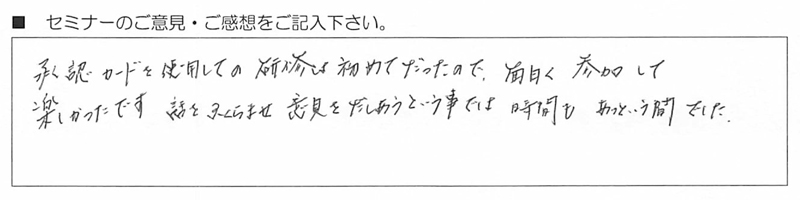 ■ セミナーのご意見・ご感想をご記入下さい。
承認カードを使用しての研修は初めてだったので、面白く参加して
楽しかったです 話をふくらませ 意見をだしあうという事では 時間も あっという間でした。